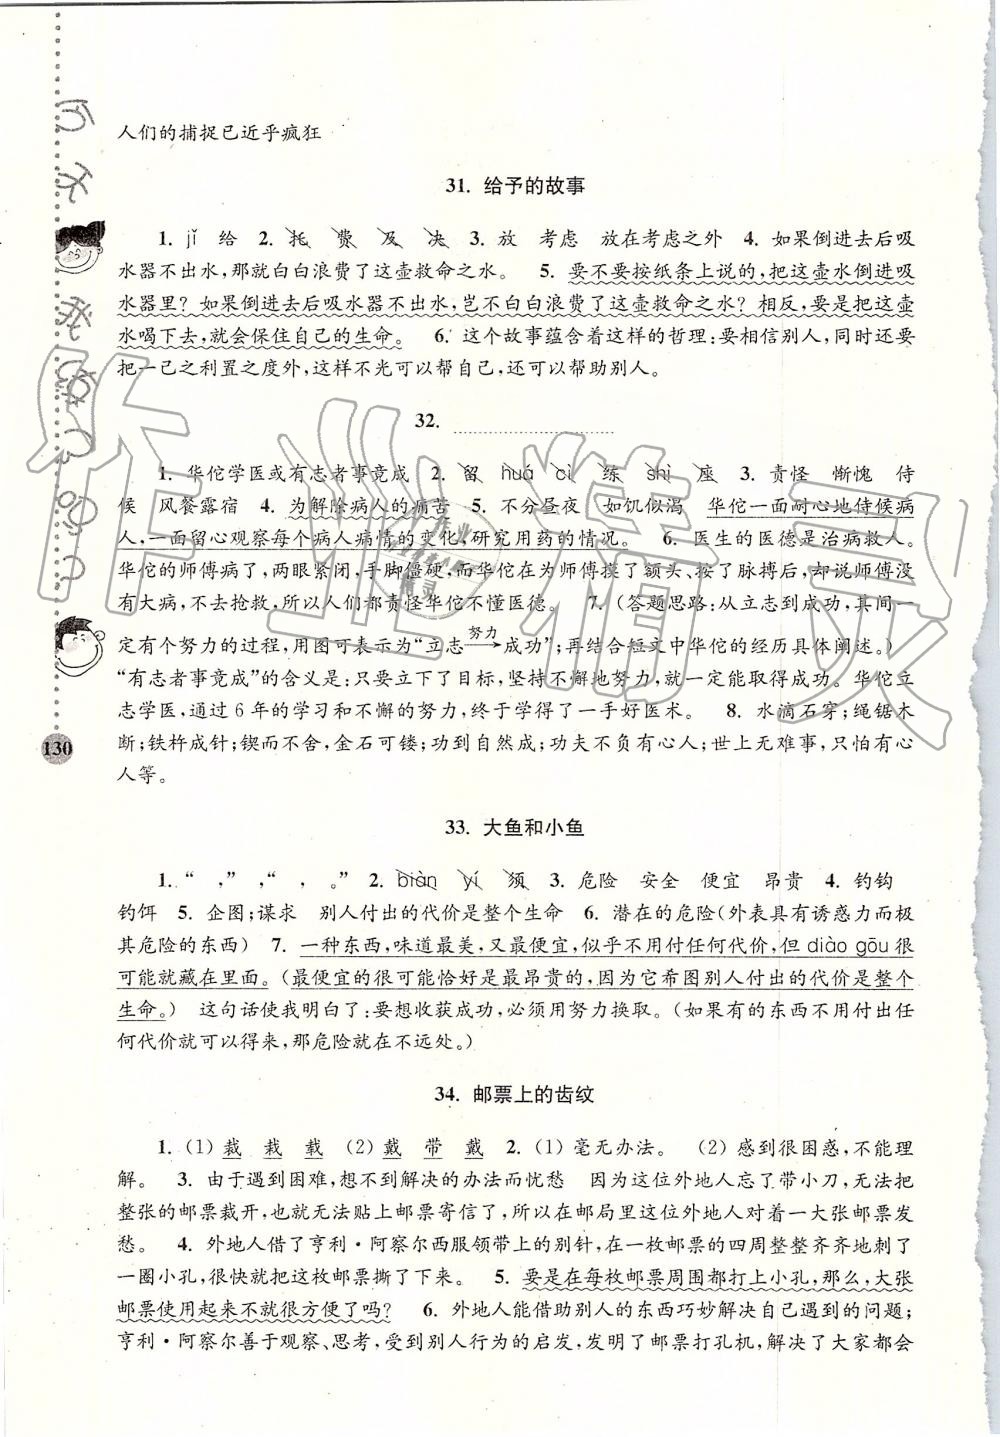 人们的捕捉已近乎疯狂
31. 给予的故事
1. jǐ 给 2. 托 费 及 决 3. 放 考虑 放在考虑之外 4. 如果倒进去后吸
水器不出水,那就白白浪费了这壶救命之水。 5. 要不要按纸条上说的,把这壶水倒进吸
水器里?如果倒进去后吸水器不出水,岂不白白浪费了这壶救命之水?相反,要是把这壶
水喝下去,就会保住自己的生命。 6. 这个故事蕴含着这样的哲理:要相信别人,同时还要
把一己之利置之度外,这样不光可以帮自己,还可以帮助别人。
32.
1. 华佗学医或有志者事竟成 2. 留 huá cì 练 shì 座 3. 责怪 惭愧 侍
候 风餐露宿 4. 为解除病人的痛苦 5. 不分昼夜 如饥似渴 华佗一面耐心地侍候病
人,一面留心观察每个病人病情的变化,研究用药的情况。 6. 医生的医德是治病救人。
华佗的师傅病了,两眼紧闭,手脚僵硬,而华佗在为师傅摸了额头、按了脉搏后,却说师傅没
有大病,不去抢救,所以人们都责怪华佗不懂医德。 7. (答题思路:从立志到成功,其间一
定有个努力的过程,用图可表示为“立志 努力→成功”;再结合短文中华佗的经历具体阐述。)
“有志者事竟成”的含义是:只要立下了目标,坚持不懈地努力,就一定能取得成功。华佗立
志学医,通过 6 年的学习和不懈的努力,终于学得了一手好医术。 8. 水滴石穿;绳锯木
断;铁杵成针;锲而不舍,金石可镂;功到自然成;功夫不负有心人;世上无难事,只怕有心
人等。
130
33. 大鱼和小鱼
1. “ ,” ,“ , 。” 2. biàn yí 须 3. 危险 安全 便宜 昂贵 4. 钓钩
钓饵 5. 企图;谋求 别人付出的代价是整个生命 6. 潜在的危险(外表具有诱惑力而极
其危险的东西) 7. 一种东西,味道最美,又最便宜,似乎不用付任何代价,但 diào gōu 很
可能就藏在里面。(最便宜的很可能恰好是最昂贵的,因为它希图别人付出的代价是整个
生命。) 这句话使我明白了:要想收获成功,必须用努力换取。(如果有的东西不用付出任
何代价就可以得来,那危险就在不远处。)
34. 邮票上的齿纹
1. (1) 裁 栽 载 (2) 戴 带 戴 2. (1) 毫无办法。 (2) 感到很困惑,不能理
解。 3. 由于遇到困难,想不到解决的办法而忧愁 因为这位外地人忘了带小刀,无法把
整张的邮票裁开,也就无法贴上邮票寄信了,所以在邮局里这位外地人对着一大张邮票发
愁。 4. 外地人借了亨利·阿察尔西服领带上的别针,在一枚邮票的四周整整齐齐地刺了
一圈小孔,很快就把邮票撕了下来。 5. 要是在每枚邮票周围都打上小孔,那么,大张
邮票使用起来不就很方便了吗? 6. 外地人能借助别人的东西巧妙解决自己遇到的问题;
亨利·阿察尔善于观察、思考,受到别人行为的启发,发明了邮票打孔机,解决了大家都会
作业精灵